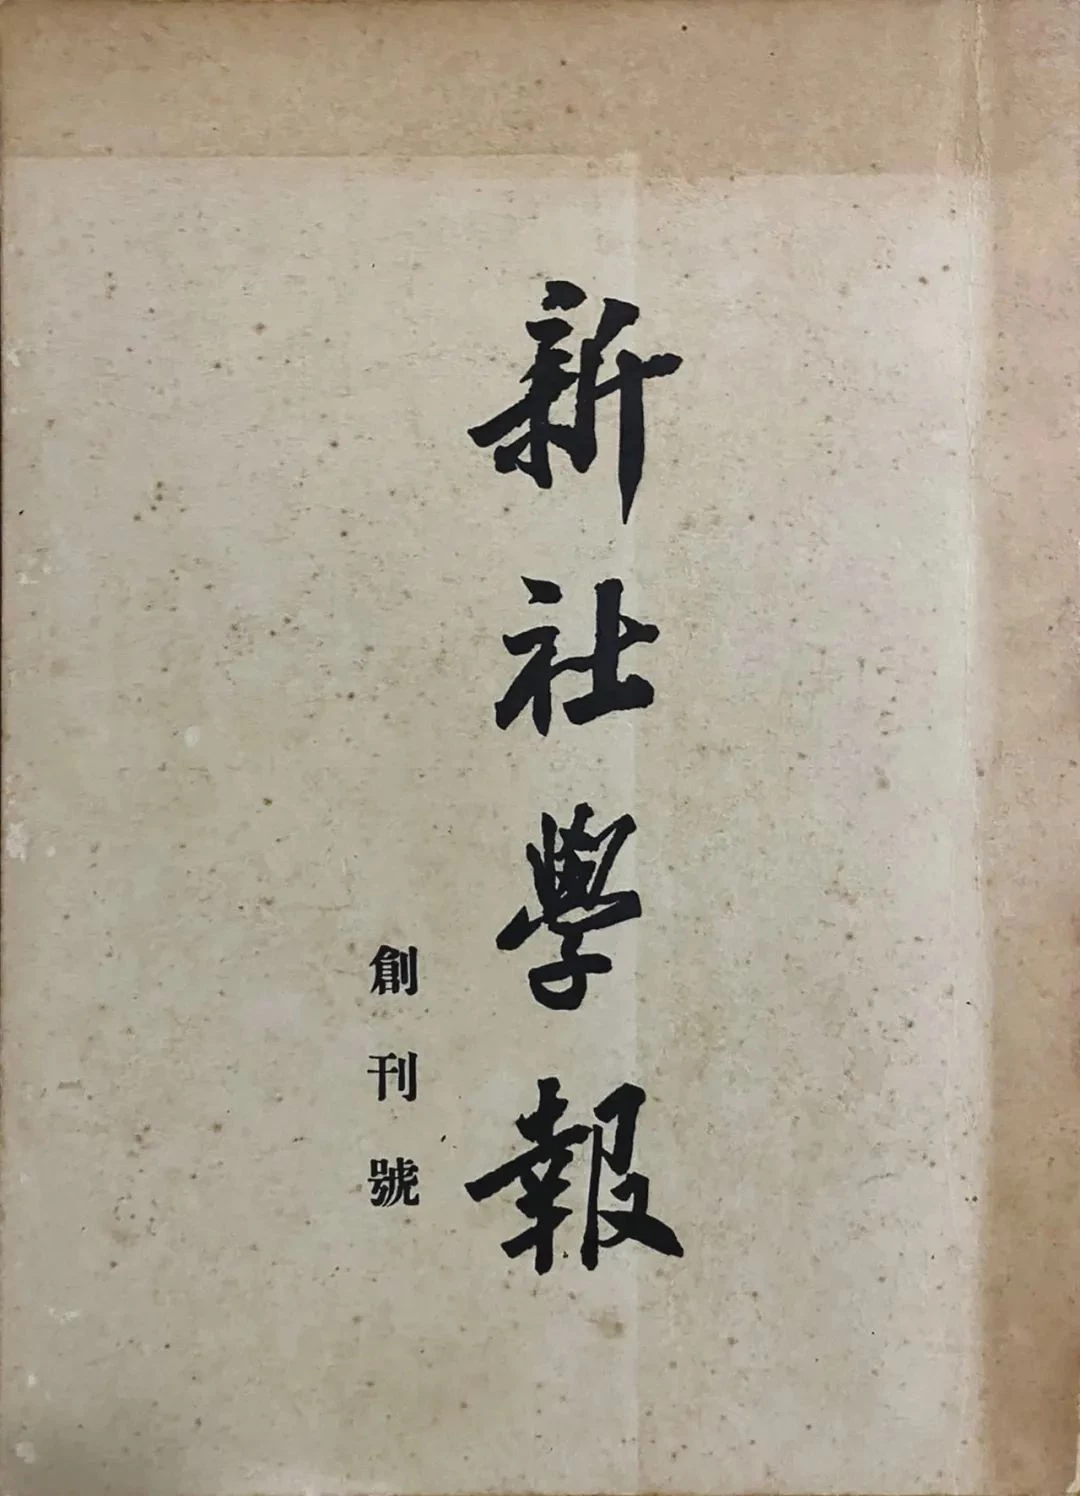 新社學報
創刊號